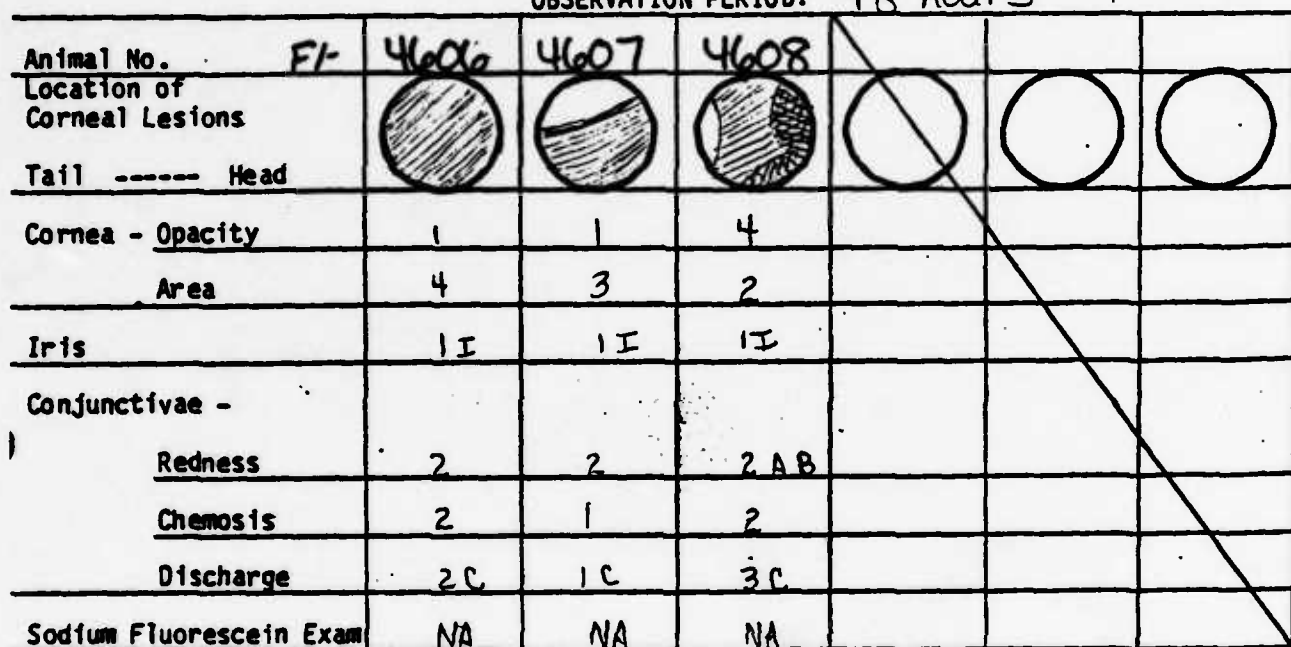 OBSERVATION PERIOD: hours
Animal No. F/- 4606 4607 4608
Location of
Corneal Lesions
Tail ------ Head
Cornea - Opacity 1 1 4
Area 4 3 2
Iris 1 I 1 I 1 I
Conjunctivae -
Redness 2 2 2 A B
Chemosis 2 1 2
Discharge 2 C 1 C 3 C
Sodium Fluorescein Exam NA NA NA